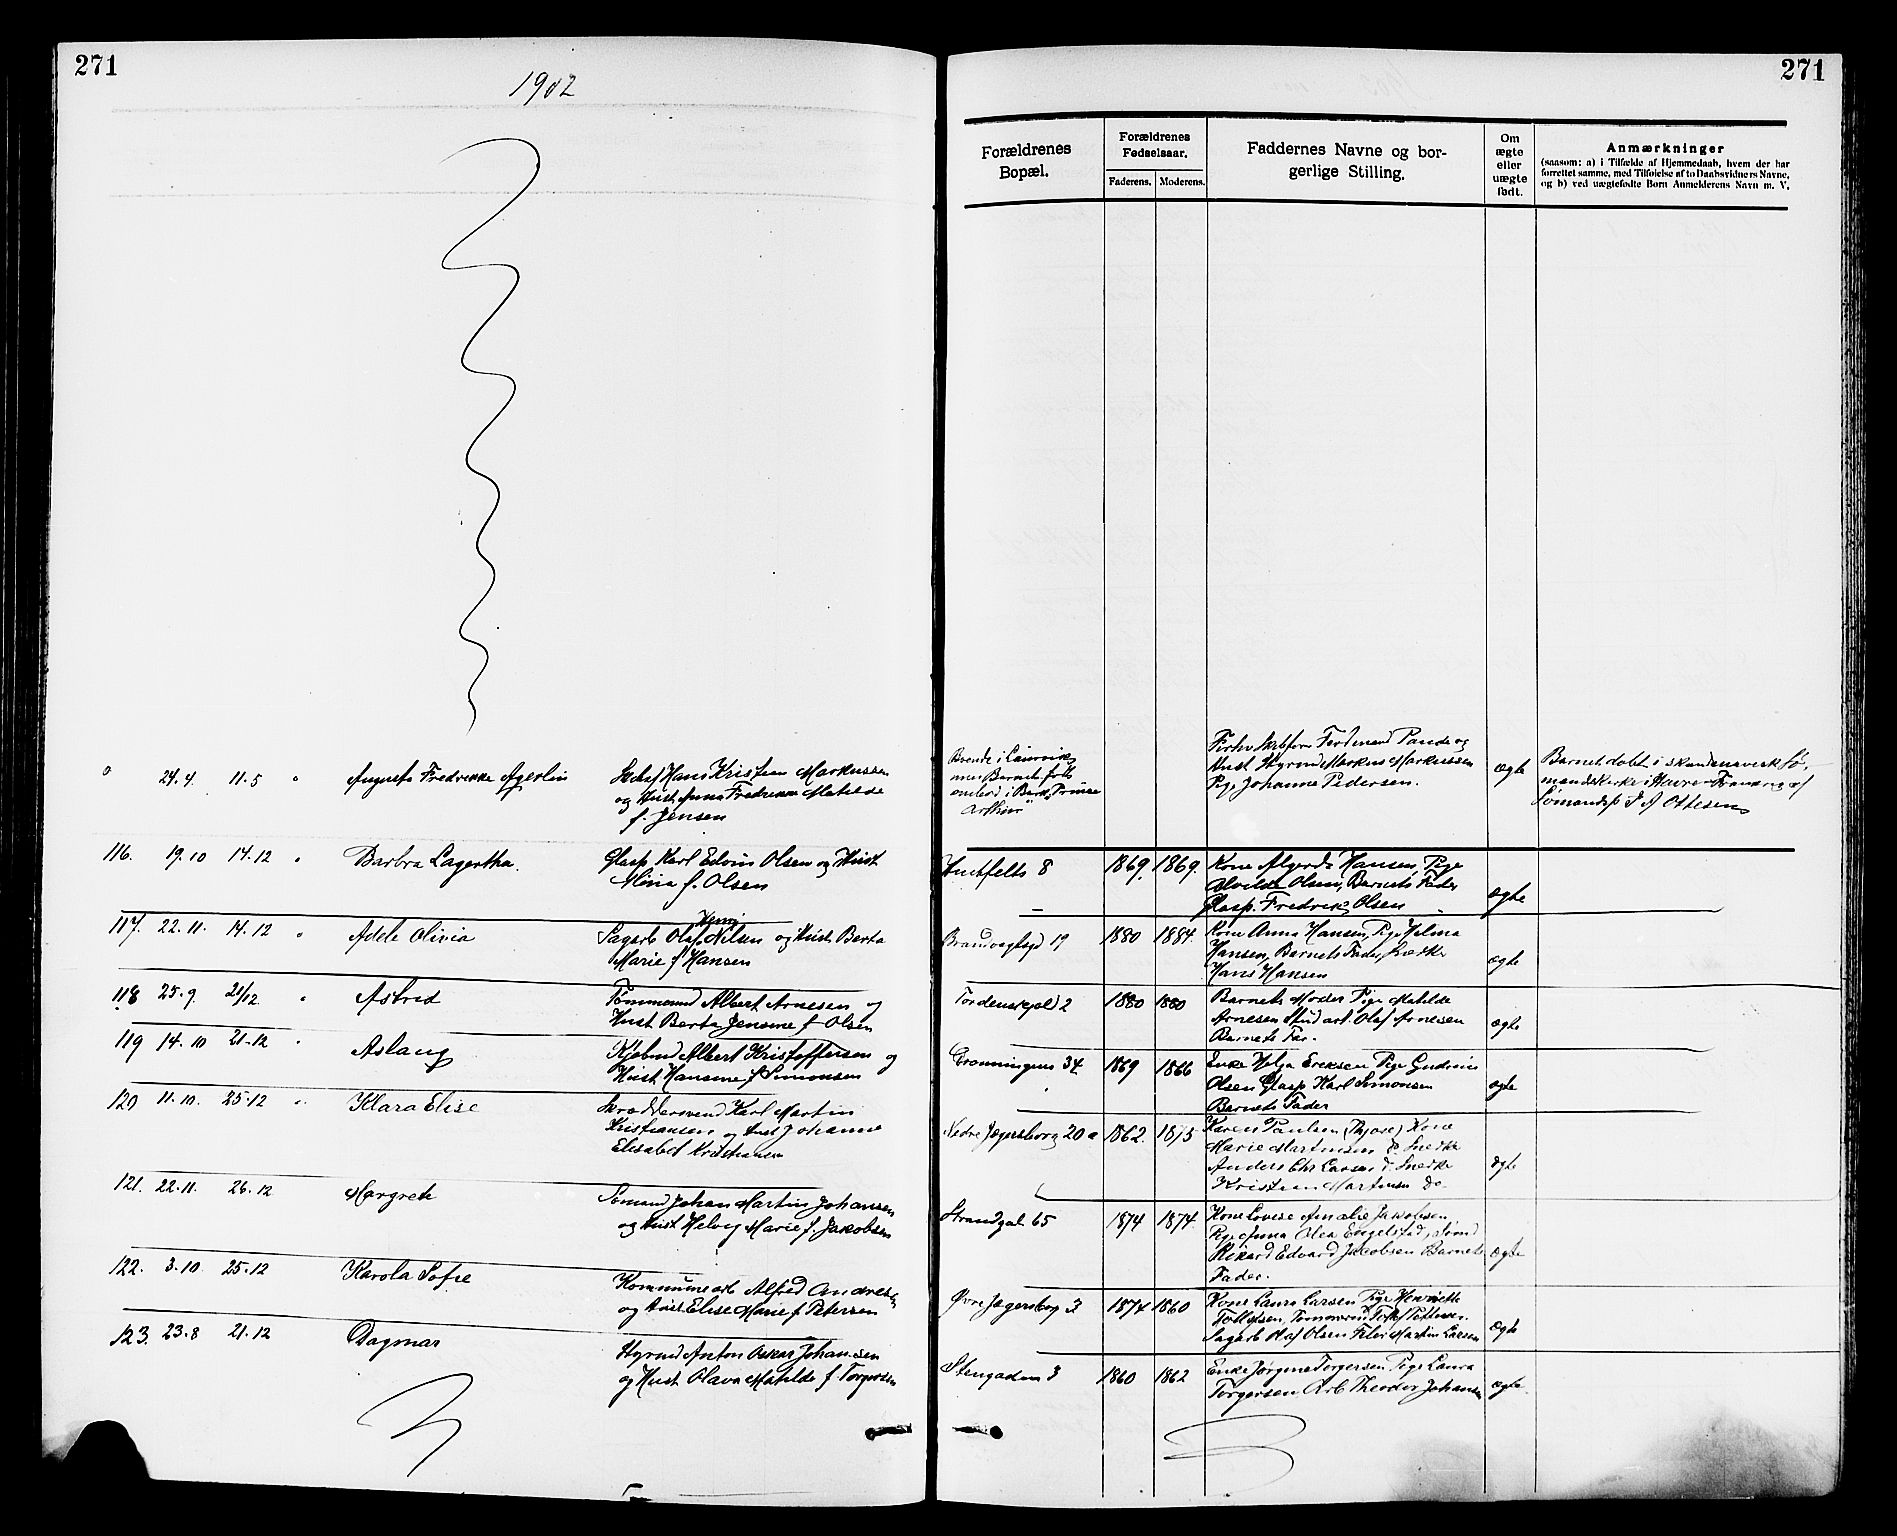 271
1902
0 24.4. 11.5 " Augusta Fredrikke Agerlin
Hans Kristian Markussen
og Hust. Anna Fredrikke Matilde
f. Jensen
116. 19.10 14.12 " Barbra Lagertha.
Glasp. Karl Edvin Olsen og Hust
Mina f. Olsen
117. 22.11. 14.12 " Adele Olivia
Henry
Sagarb Olaf Nilsen og Hust. Berta
Marie f Hansen
118 25.9. 21/12 " Astrid
Tømmermd Albert Arnesen og
Hust Berta Jensine f Olsen
119 14.10 21.12 " Aslaug
Kjøbmd Albert Kristoffersen og
Hust Hansine f Simonsen
120 11.10. 25.12 " Klara Elise
Skræddersvend Karl Martin
Kristiansen og Hust Johanne
Elisabet Kristiansen
121. 22.11. 26.12 Margrete
Sømand Johan Martin Johansen
og Hust Helvig Marie f. Jakobsen
122. 3.10. 25.12 Karola Sofie
Kommunearb Alfred Andresen
og Hust Elise Marie f Petersen
123. 23.8 21.12 Dagmar
Styrmd Anton Oskar Johansen
og Hust Olava Matilde f. Torgersen
271
Forældrenes
Bopæl.
Forældrenes
Fødselsaar.
Faderens. Moderens.
Faddernes Navne og bor-
gerlige Stilling.
Om
ægte
eller
uægte
født.
Anmærkninger
(saasom: a) i Tilfælde af Hjemmedaab, hvem der har
forrettet samme, med Tilføielse af to Daabsvidners Navne,
og b) ved uægtefødte Børn Anmelderens Navn m. V.
Boende i Laurvik
men Barnet født
ombord i Bark "Prince
Arthur"
Ferdinand Pande og
Hust Styrmd Markus Markussen
Pige Johanne Pedersen.
ægte
Barnet døbt i skandinavisk Sø-
mandskirke i Havre Frankrig af
Sømandsp. J A Ottesen
Huitfelts 8 1869. 1869.
Kone Algerda Hansen, Pige
Alvilde Olsen, Barnets Fader
Glasp. Fredrik Olsen
ægte
Brandvagtsgd 19 1880 1884.
Kone Anna Hansen, Pige Helma
Hansen, Barnets Fader, Snedker
Hans Hansen
ægte
Tordenskjold 2 1880 1880
Barnets Moder Pige Matilde
Arnesen Stud art. Olaf Arnesen
Barnets Far.
ægte
Grønningens 34 1869 1866
Enke Helga Ereksen Pige Gudrun
Olsen Glasp Karl Simonsen
Barnets Fader
ægte
Nedre Jegersborg 20 a 1862. 1875
Karen Paulsen (Thjøse) Kone
Marie Martinsen do Snedker
Anders Chr Larsen do Snedker
Kristian Martinsen do
ægte
Strandgat 65 1874 1874.
Kone Lovise Amalie Jakobsen
Pige Anna Olea Engelstad, Sømd
Rikard Edvard Jacobsen Barnets
Fader.
ægte
Øvre Jegersborg 3 1874 1860
Kone Laura Larsen Pige Henriette
Tollefsen, Tømmermd
Sagarb Olaf Olsen Martin Larsen
ægte
Stengaden 3 1860 1862
Enke Jørgine Torgersen Pige Laura
Torgersen Arb Theodor Johansen
ægte.